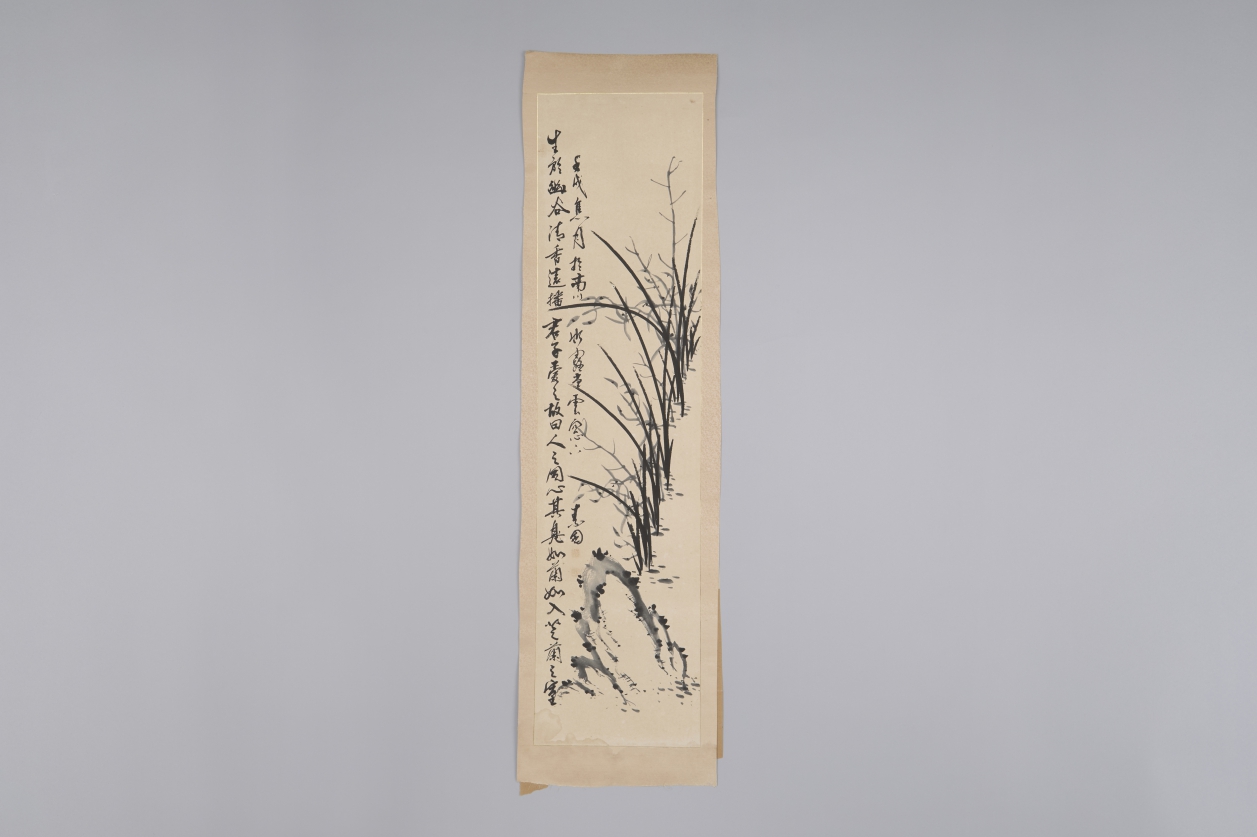 生於幽谷清香遠播君子愛之故曰人之同心其臭如蘭如入芝蘭之室
壬戌焦月於南川 堂雲窓下